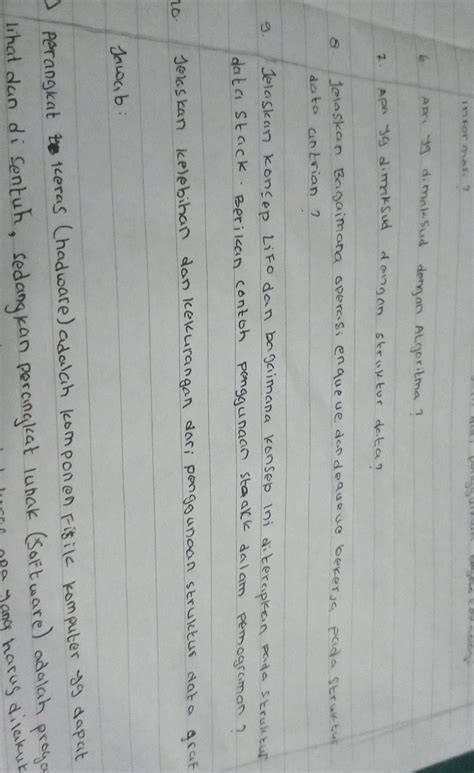 informasi ?
6. Apa yg dimaksud dengan Algoritma ?
7. Apa yg dimaksud dengan struktur data ?
8 Jelaskan Bagaimana operasi enqueue dan dequeue bekerja pada struktur
data antrian ?
9. Jelaskan konsep LIFO dan bagaimana konsep ini diterapkan pada struktur
data stack. Berikan contoh penggunaan stack dalam pemograman ?
10. Jelaskan kelebihan dan kekurangan dari penggunaan struktur data graf
Jawab :
perangkat keras (hadware) adalah komponen Fisik komputer yg dapat
lihat dan di sentuh, sedangkan perangkat lunak (software) adalah progra
apa yang harus dilakuk